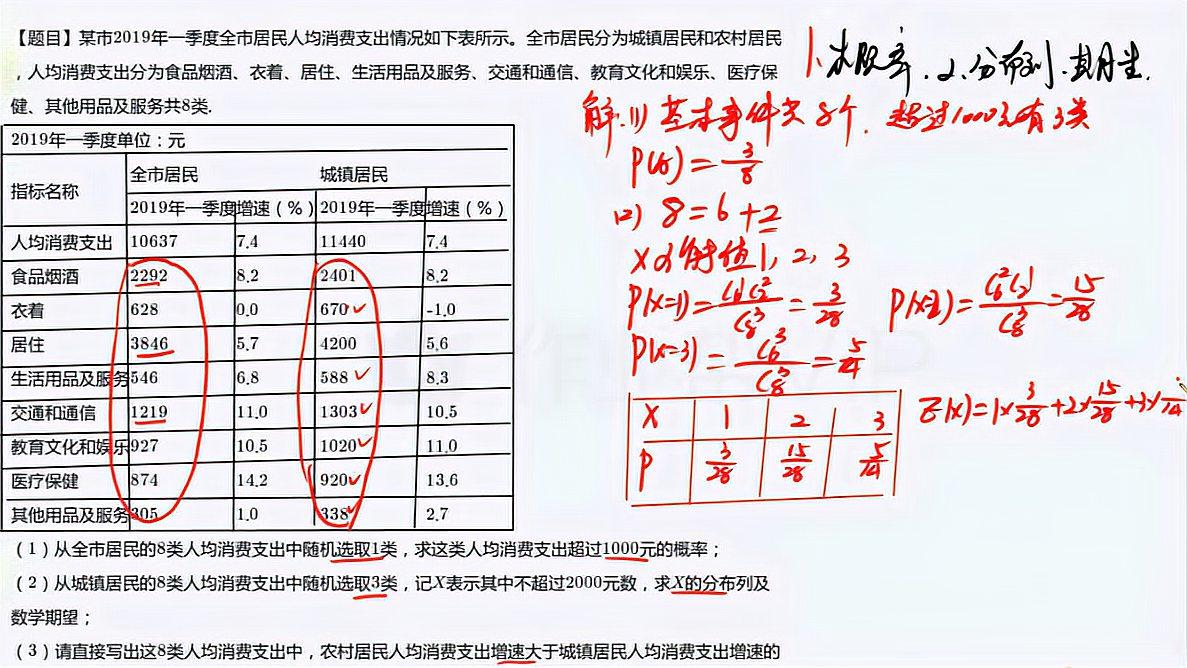 【题目】某市2019年一季度全市居民人均消费支出情况如下表所示。全市居民分为城镇居民和农村居民
，人均消费支出分为食品烟酒、衣着、居住、生活用品及服务、交通和通信、教育文化和娱乐、医疗保
健、其他用品及服务共8类.
2019年一季度单位：元
指标名称 全市居民 城镇居民
2019年一季度 增速（%） 2019年一季度 增速（%）
人均消费支出 10637 7.4 11440 7.4
食品烟酒 2292 8.2 2401 8.2
衣着 628 0.0 670 -1.0
居住 3846 5.7 4200 5.6
生活用品及服务 546 6.8 588 8.3
交通和通信 1219 11.0 1303 10.5
教育文化和娱乐 927 10.5 1020 11.0
医疗保健 874 14.2 920 13.6
其他用品及服务 305 1.0 338 2.7
（1）从全市居民的8类人均消费支出中随机选取1类，求这类人均消费支出超过1000元的概率；
（2）从城镇居民的8类人均消费支出中随机选取3类，记X表示其中不超过2000元数，求X的分布列及
数学期望；
（3）请直接写出这8类人均消费支出中，农村居民人均消费支出增速大于城镇居民人均消费支出增速的
1.求概率.2.分布列.期望.
解.(1)基本事件共8个.超过1000元有3类
=3/8
(2) 8=6+2
X的取值1,2,3
P(X=1)=C₆¹C₂²/C₈³=3/28 P(X=2)=C₆²C₂¹/C₈³=15/28
P(X=3)=C₆³/C₈³=5/14
X 1 2 3
P 3/28 15/28 5/14
E(X)=1×3/28+2×15/28+3×